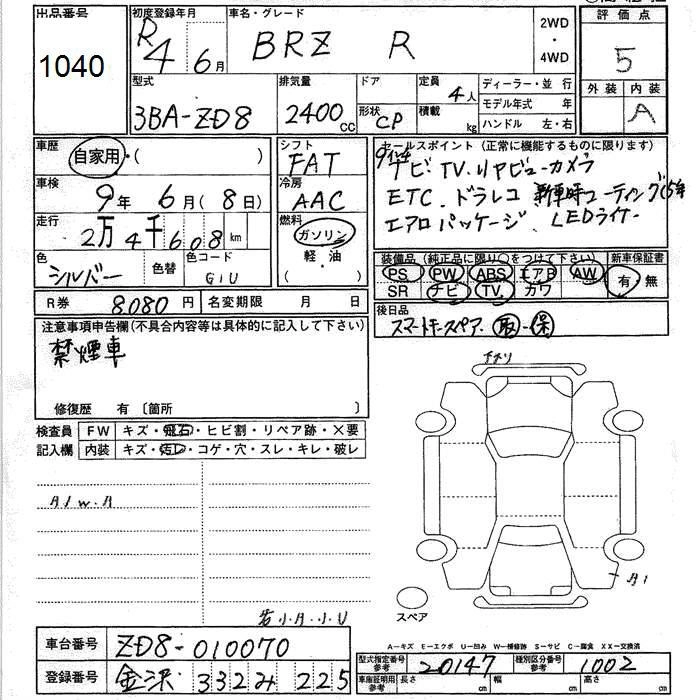 出品番号 初度登録年月 車名・グレード 2WD ・ 4WD 評価点
1040 R4 6月 BRZ R 5
型式 排気量 ドア 定員 4人 ディーラー・並 行 外装 内装
3BA-ZD8 2400cc 形状 CP 積載 kg モデル年式 年 A
ハンドル 左・右
車歴 自家用・( ) シフト FAT セールスポイント (正常に機能するものに限ります)
ナビ TV リヤビューカメラ
車検 9年 6月 (8日) 冷房 AAC ETC. ドラレコ 新車時コーティング(5年
走行 2万4千608km 燃料 ガソリン 軽・油 ( ・ ) エアロパッケージ. LEDライナー
色 シルバー 色替 色コード G1U
装備品 (純正品に限り○をつけて下さい) 新車保証書
PS PW ABS エアB AW 有・無
SR ナビ TV カワ
R券 8,080円 名変期限 月 日
後日品
スマートキースペア. 取-保
注意事項申告欄(不具合内容等は具体的に記入して下さい)
禁煙車
修復歴 有 〔箇所 〕
検査員 FW キズ・飛石・ヒビ割・リペア跡・×要
記入欄 内装 キズ・汚レ・コゲ・穴・スレ・キレ・破レ
A1
スペア
車台番号 ZD8-010070
A-キズ E-エクボ U-凹み W-補修跡 S-サビ C-腐食 XX-交換済
型式指定番号 参考 20147 種別区分番号 参考 1002
登録番号 金沢 332 み 225
車庫証明用 参考 長さ cm 幅 cm 高さ cm